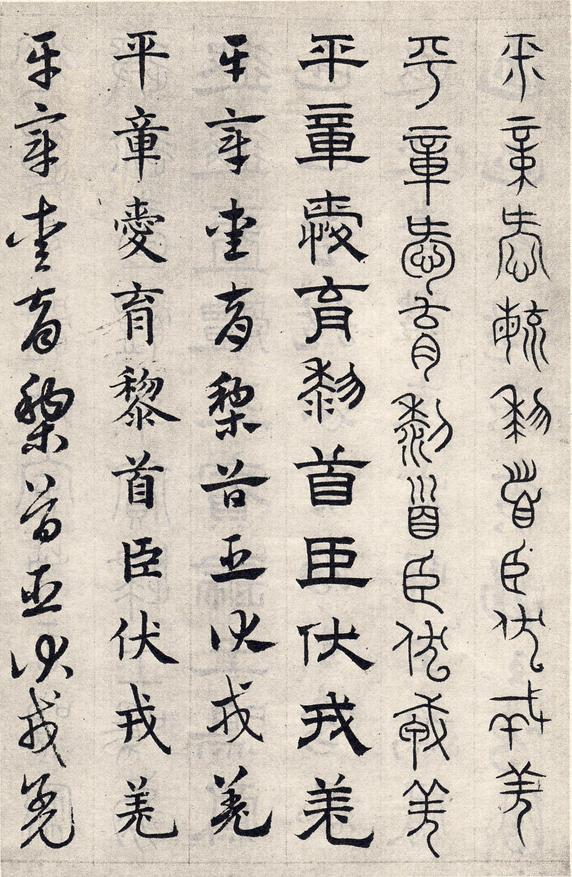 平章愛育黎首臣伏戎羌
平章愛育黎首臣伏戎羌
平章愛育黎首臣伏戎羌
平章愛育黎首臣伏戎羌
平章愛育黎首臣伏戎羌
平章愛育黎首臣伏戎羌